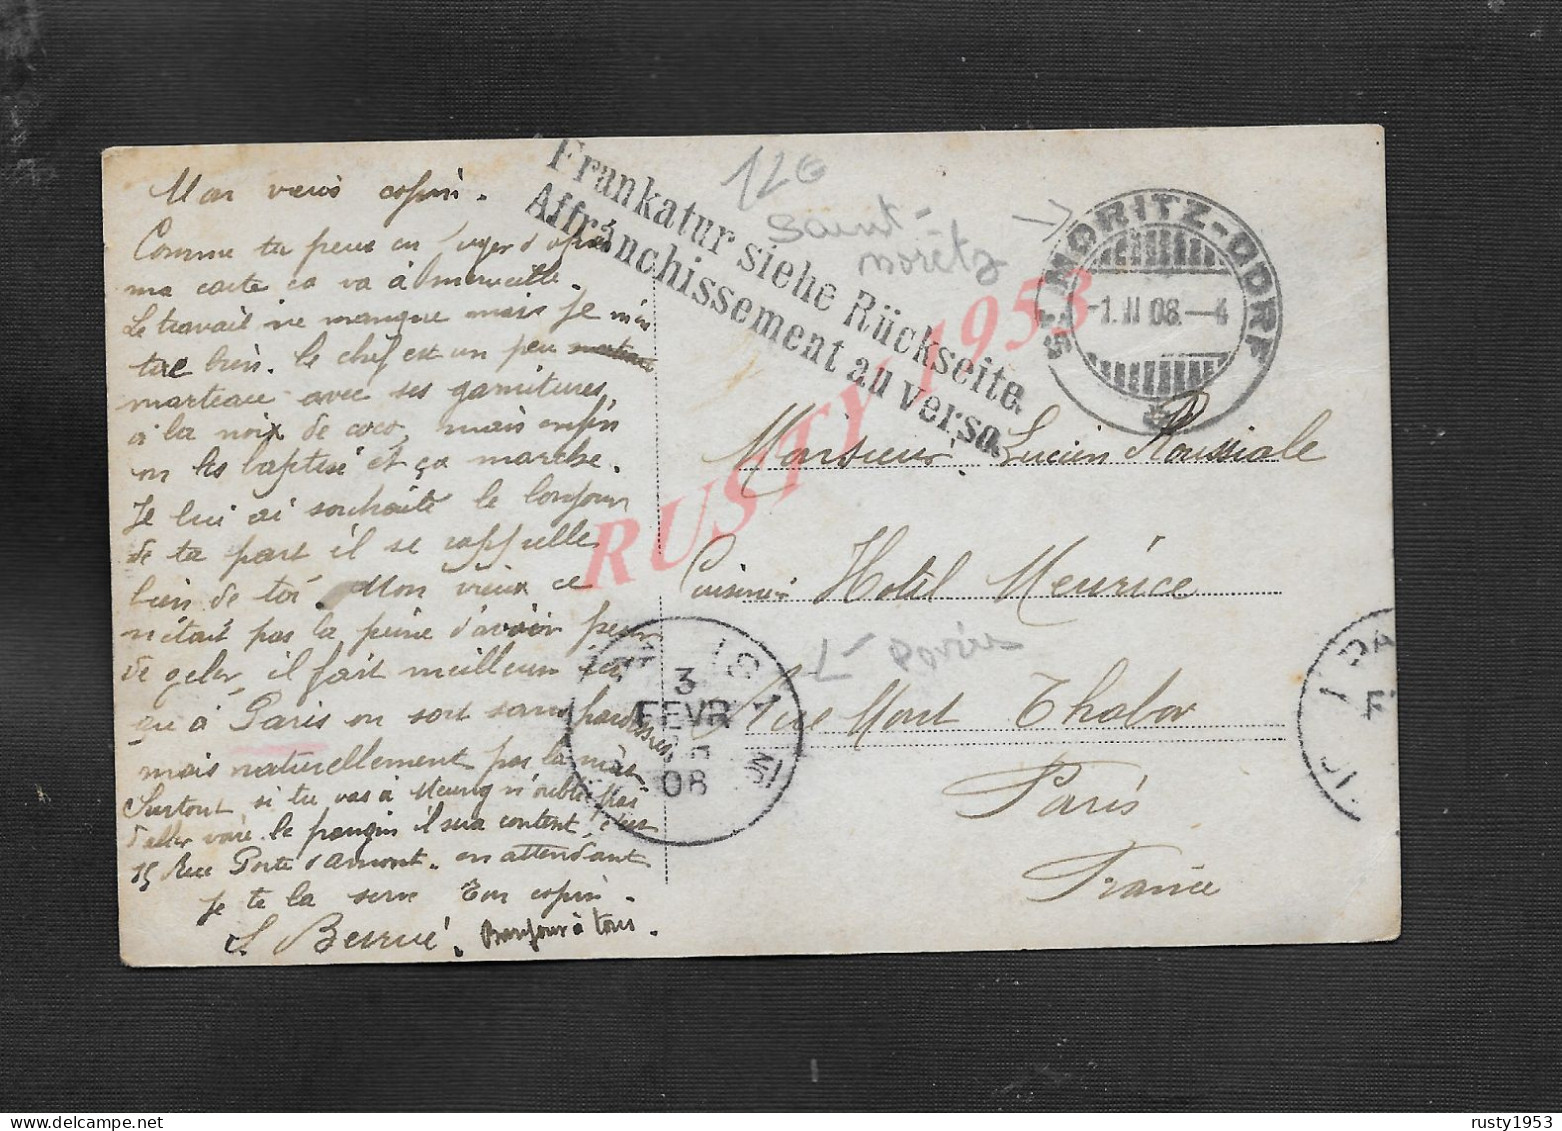 Mon vieux copin.
Comme tu peux en juger d'après
ma carte ça va à la merveille.
Le travail ne manque mais je m'en
tire bien. le chef est un peu
marteau avec ses garnitures
à la noix de coco, mais enfin
et ça marche.
Je lui ai souhaité le bonjour
de ta part il se rappelle
bien de toi. Mon vieux ce
n'était pas la peine d'avoir peur
de geler, il fait meilleur ici
qu'à Paris on sort sans pardessus
mais naturellement pas la nuit
Surtout si tu vas à Meung n'oublie pas
d'aller voir le frangin il sera content, c'est
15 Rue Porte d'amont. en attendant
je te la serre Ton copin.
L Berrué. Bonjour à tous.
Frankatur siehe Rückseite.
Affranchissement au verso.
120
Saint-
moritz
ST. MORITZ-DORF
-1.II 08.-4
Monsieur Lucien Roussiale
Cuisinier Hotel Meurice
L Paris
Rue Mont Thabor
Paris
France
3
FEVR
08
PA
F
RUSTY 1953
rusty1953